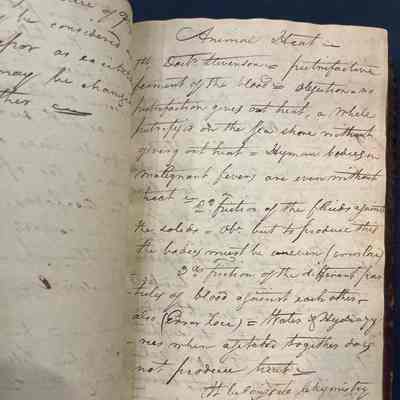 be considered
vapor as exciting
may be changed
ther
Animal Heat
Doctr. Stevenson = putrifactive
ferment of the blood = objection = no
putrifaction gives out heat, a Whale
putrifys on the sea shore without
giving out heat = Human bodies in
malignant fevers are even without
heat = 2d friction of the fluids against
the solids = Ob: but to produce this
the bodies must be uneven
3d friction of the different par
ticles of blood against each other =
also (Error Loci) = Water & Hydrargy
rus when agitated together do
not produce heat =
It belongs to chymistry